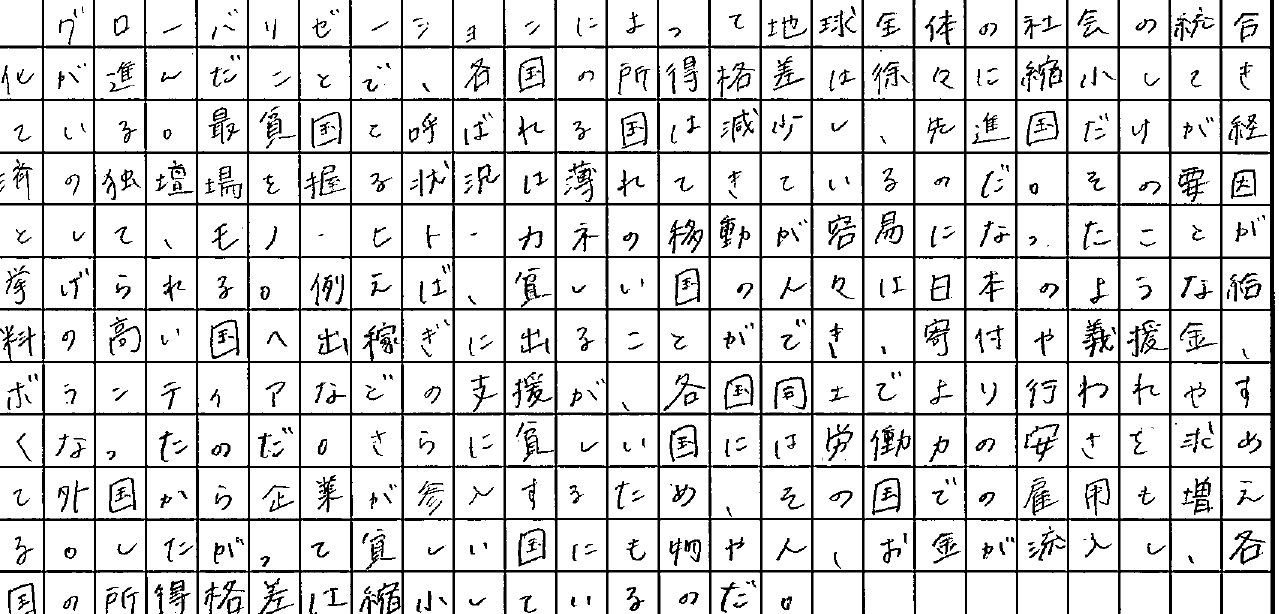 グローバリゼーションによって地球全体の社会の統合
化が進んだことで、各国の所得格差は徐々に縮小してき
ている。最貧国と呼ばれる国は減少し、先進国だけが経
済の独壇場を握る状況は薄れてきているのだ。その要因
として、モノ・ヒト・カネの移動が容易になったことが
挙げられる。例えば、貧しい国の人々は日本のような給
料の高い国へ出稼ぎに出ることができ、寄付や義援金、
ボランティアなどの支援が、各国同士でより行われやす
くなったのだ。さらに貧しい国には労働力の安さを求め
て外国から企業が参入するため、その国での雇用も増え
る。したがって貧しい国にも物や人、お金が流入し、各
国の所得格差は縮小しているのだ。